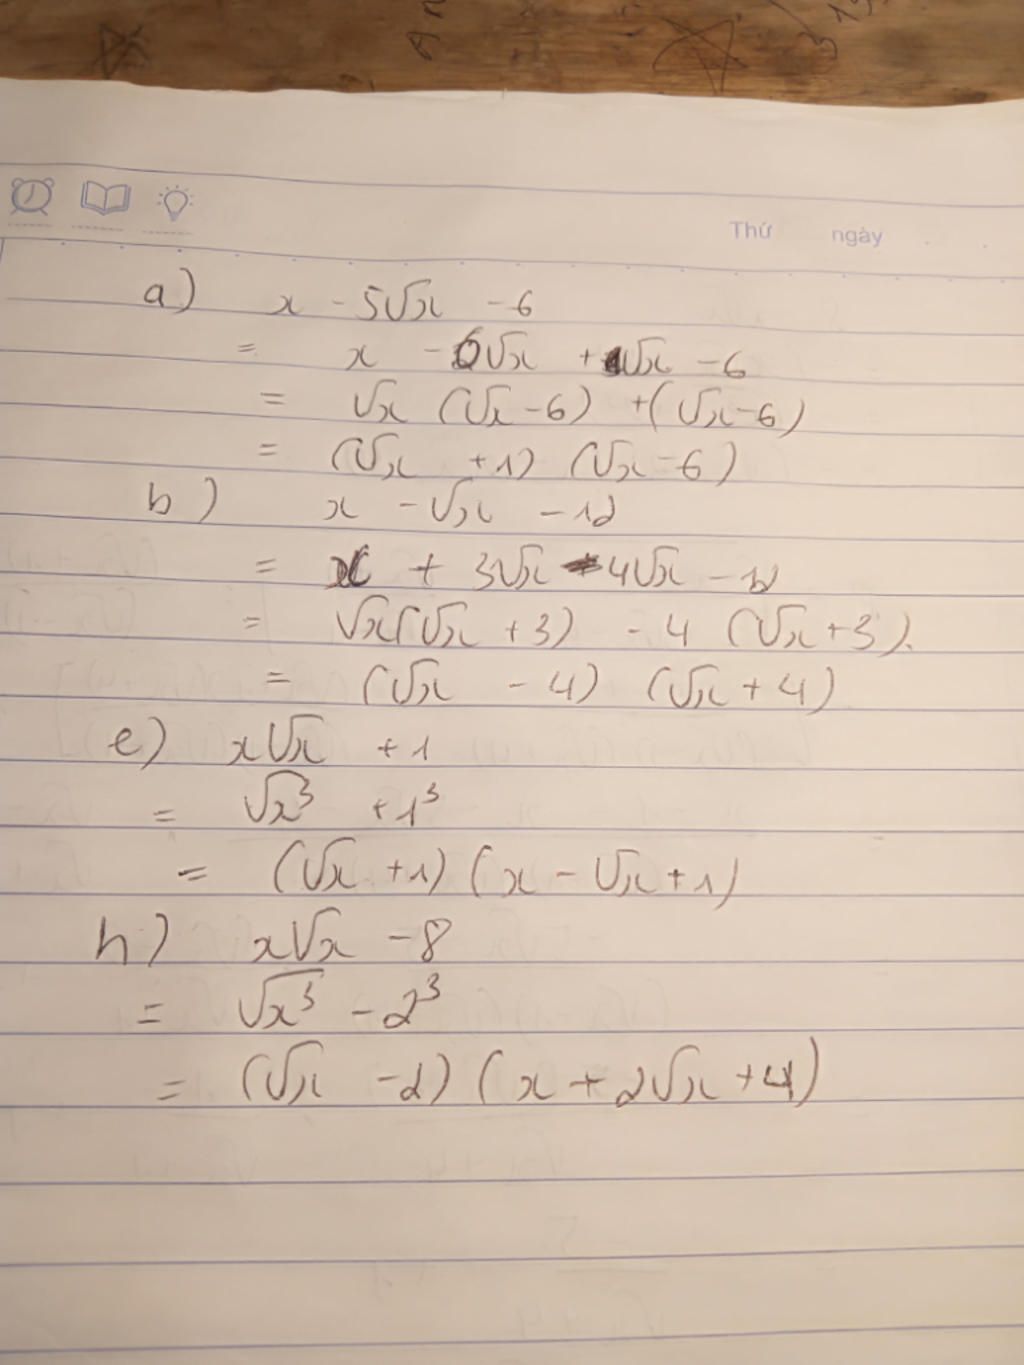 Thứ ngày
a) x - 5√x - 6
= x - 6√x + 1√x - 6
= √x (√x - 6) + (√x - 6)
= (√x + 1) (√x - 6)
b) x - √x - 12
= x + 3√x - 4√x - 12
= √x(√x + 3) - 4 (√x + 3).
= (√x - 4) (√x + 4)
e) x√x + 1
= √x³ + 1³
= (√x + 1) (x - √x + 1)
h) x√x - 8
= √x³ - 2³
= (√x - 2) (x + 2√x + 4)